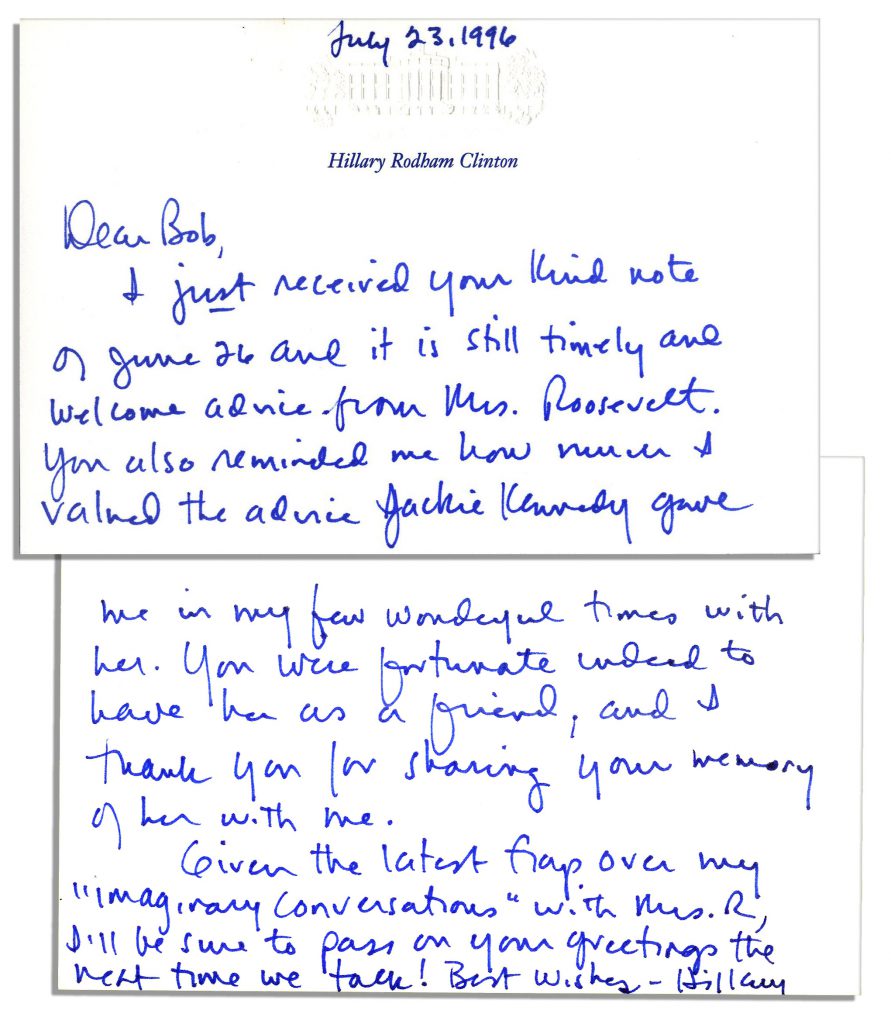 July 23, 1996
Hillary Rodham Clinton
Dear Bob,
I just received your kind note
of June 26 and it is still timely and
welcome advice from Mrs. Roosevelt.
You also reminded me how much I
valued the advice Jackie Kennedy gave
me in my few wonderful times with
her. You were fortunate indeed to
have her as a friend, and I
thank you for sharing your memory
of her with me.
Given the latest flap over my
"imaginary conversations" with Mrs. R,
I'll be sure to pass on your greetings the
next time we talk! Best wishes – Hillary